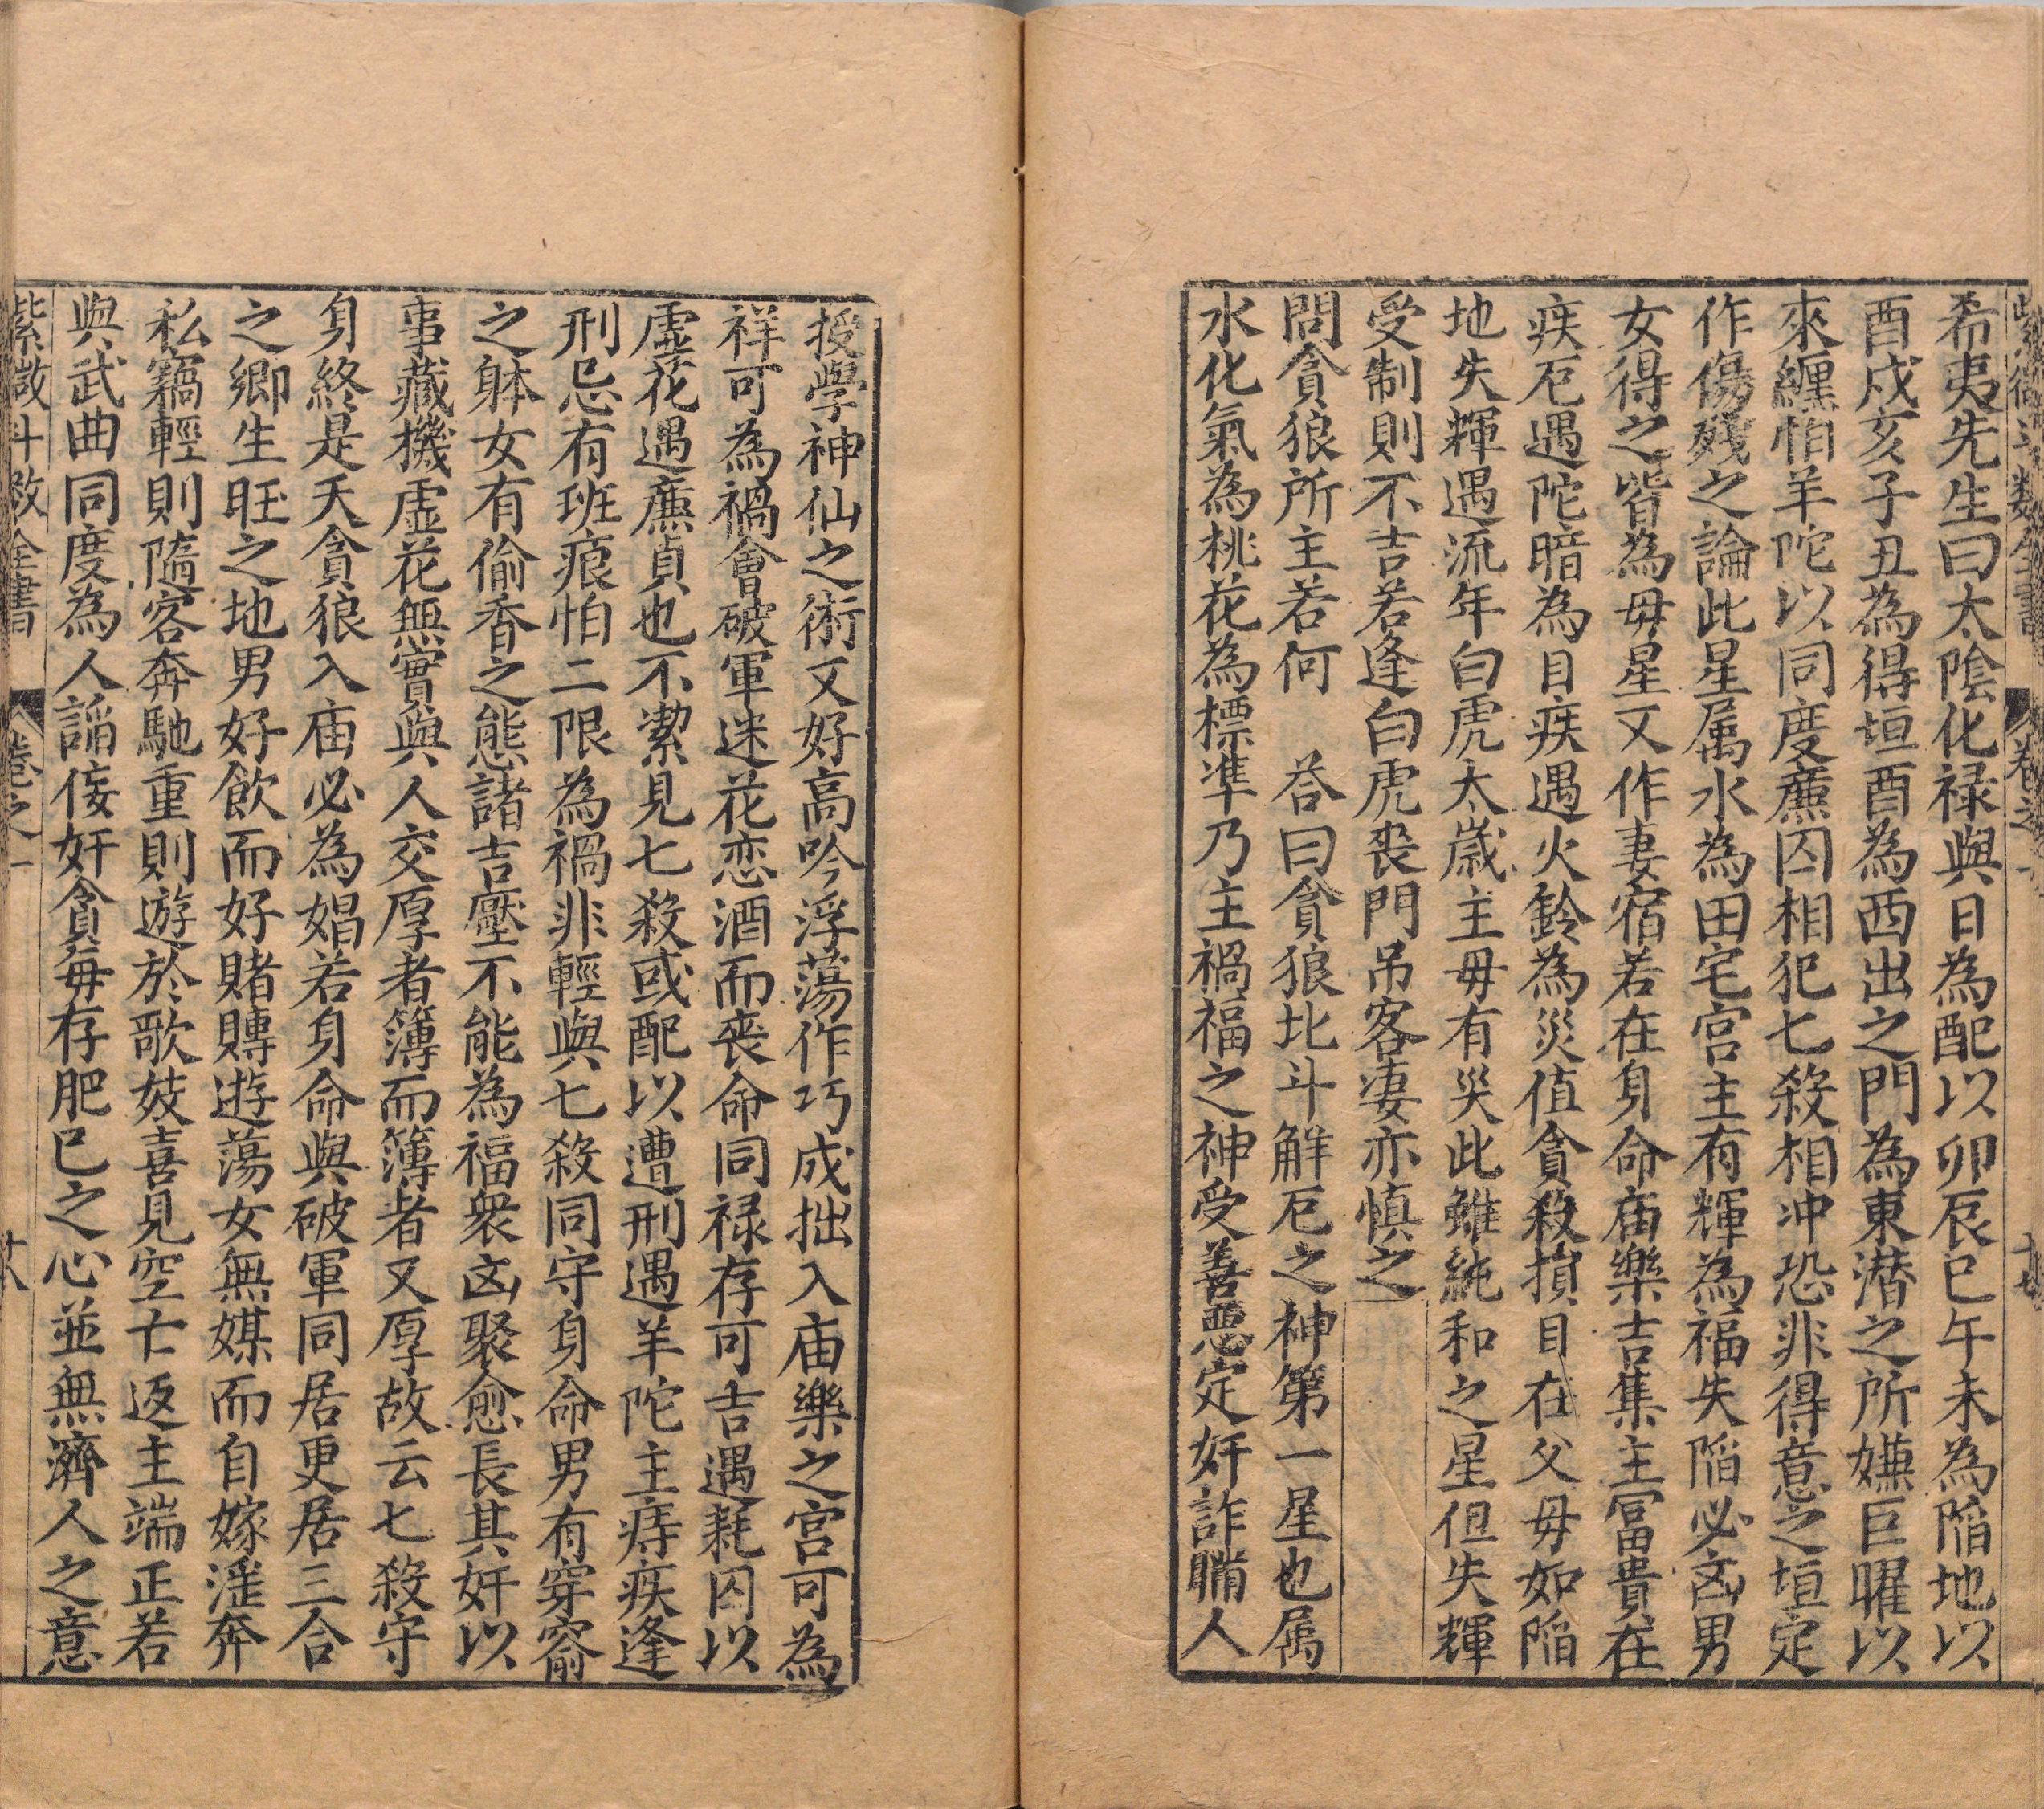 紫微斗数全書 卷之一
希夷先生曰太陰化禄與日為配以卯辰巳午未為陷地以
酉戌亥子丑為得垣酉為西出之門為東潜之所嫌巨曜以
來纏怕羊陀以同度㢘囚相犯七殺相冲恐非得意之垣定
作傷殘之論此星属水為田宅宫主有輝為福失陷必凶男
女得之皆為毋星又作妻宿若在身命庙樂吉集主冨貴在
疾厄遇陀暗為目疾遇火鈴為災值貪殺損目在父毋如陷
地失輝遇流年白虎太歲主毋有災此雖純和之星但失輝
受制則不吉若逢白虎丧門吊客妻亦慎之
問貪狼所主若何 荅曰貪狼北斗觧厄之神第一星也属
水化氣為桃花為標準乃主禍福之神受善惡定奸詐瞞人
授學神仙之術又好高吟浮蕩作巧成拙入庙樂之宫可為
祥可為禍會破軍迷花恋酒而丧命同禄存可吉遇耗囚以
虚花遇㢘貞也不潔見七殺或配以遭刑遇羊陀主痔疾逢
刑忌有班痕怕二限為禍非輕與七殺同守身命男有穿窬
之躰女有偷香之態諸吉壓不能為福衆凶聚愈長其奸以
事藏機虚花無實與人交厚者簿而簿者又厚故云七殺守
身終是夭貪狼入庙必為娼若身命與破軍同居更居三合
之鄉生旺之地男好飲而好賭賻遊蕩女無媒而自嫁滛奔
私竊輕則隨客奔馳重則遊於歌妓喜見空亡返主端正若
與武曲同度為人謟佞奸貪每存肥己之心並無濟人之意
紫微斗数全書 卷之一 十八